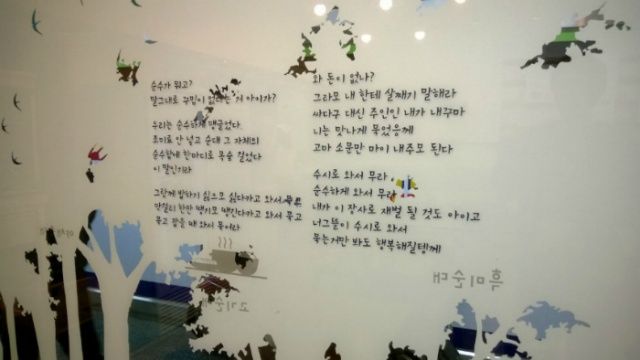 순수가 뭐고?
말그대로 꾸밈이 없다는 거 아이가?
우리는 순수하게 맹글었다
조미료 안 넣고 순대 그 자체의
순수함에 한마디로 목숨 걸었다
이 말인기라
그란께 밥하기 싫으모 싫다카고 와서
만날리 한판 땡기모 땡긴다카고 와서 묵고
묵고 잡을 때 와서 묵어라
와 돈이 없나?
그라모 내 한테 살째기 말해라
싸다구 대신 주인인 내가 내꾸마
니는 맛나게 묵었음께
고마 소문만 마이 내주모 된다
수시로 와서 무라
순수하게 와서 무라
내가 이 장사로 재벌 될 것도 아이고
너그들이 수시로 와서
묵는거만 봐도 행복해질텐께
흑미순대
고기순대